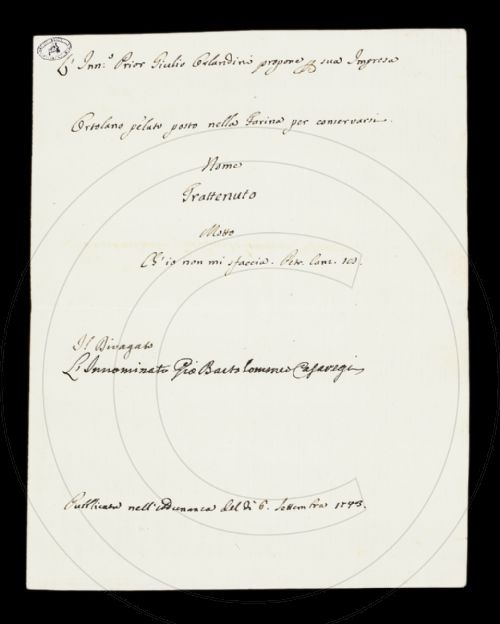 L'Inn.º Prior Giulio Orlandini propone p sua Impresa
Ortolano pelato posto nella Farina per conservarsi.
Nome
Trattenuto
Motto
Ch'io non mi sfaccia. Petr. Canz.
Il Divagato
L'Innominato Gio Bartolommeo Casaregi
Pubblicata nell'Adunanza del dì 6. Settembre 1743.
C